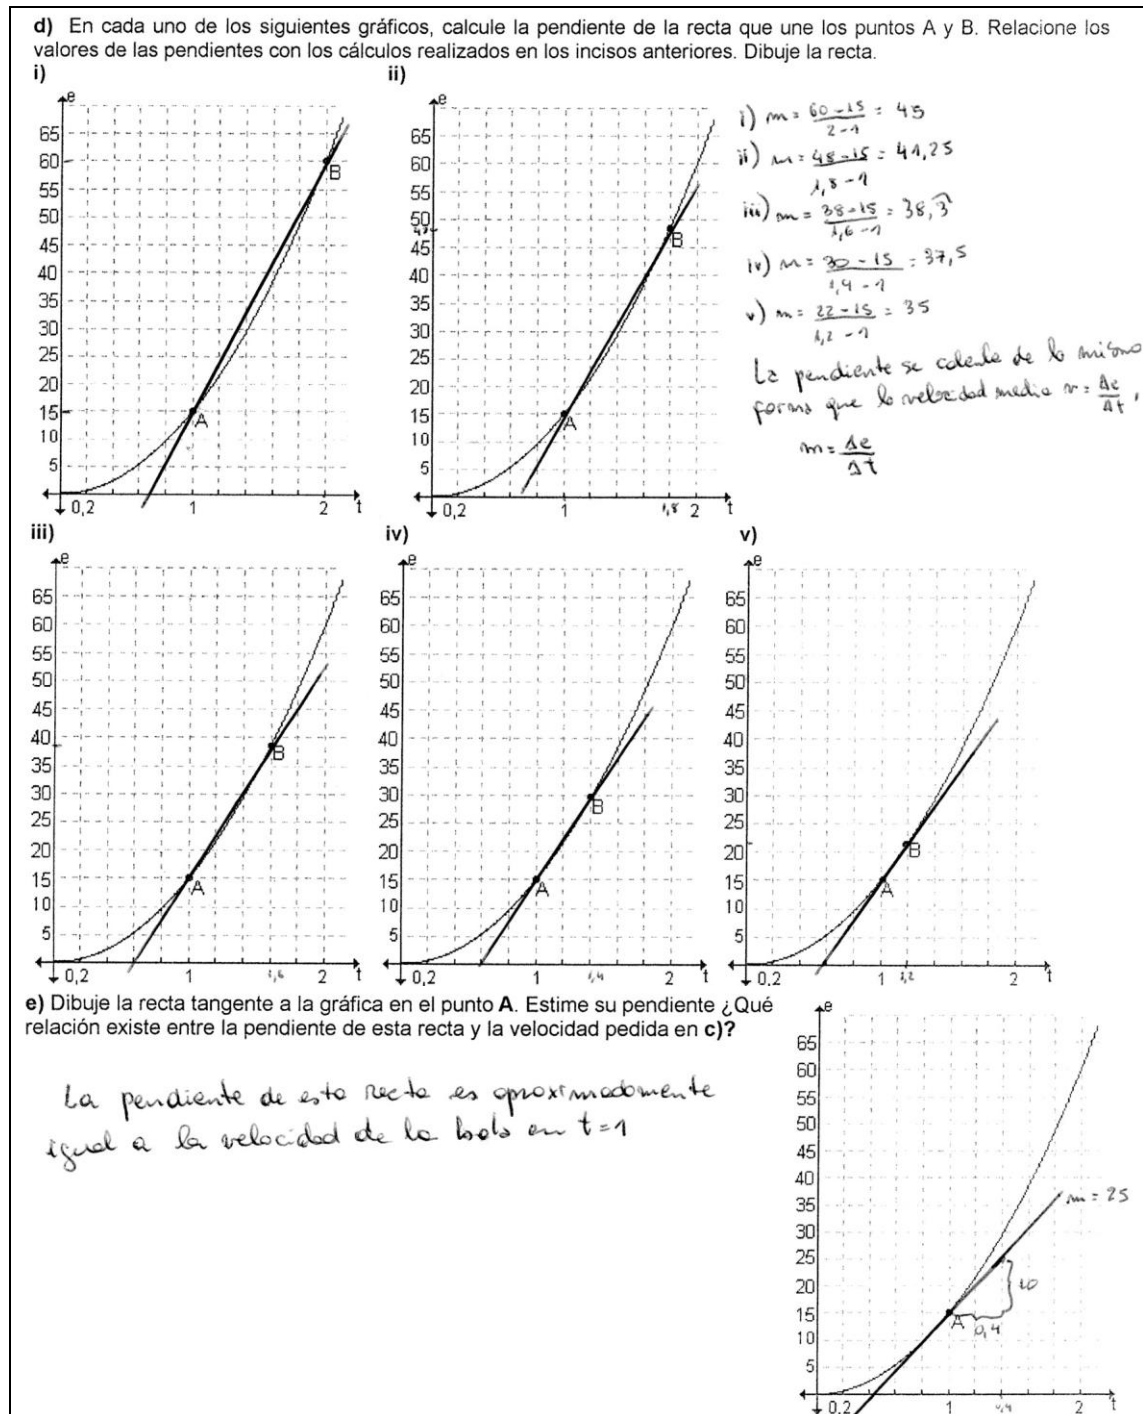 d) En cada uno de los siguientes gráficos, calcule la pendiente de la recta que une los puntos A y B. Relacione los
valores de las pendientes con los cálculos realizados en los incisos anteriores. Dibuje la recta.
i)
e
65
60
55
50
45
40
35
30
25
20
15
10
5
0,2
1
2
t
A
B
ii)
e
65
60
55
50
48
45
40
35
30
25
20
15
10
5
0,2
1
1,8
2
t
A
B
i) m = 60-15 / 2-1 = 45
ii) m = 48-15 / 1,8-1 = 41,25
iii) m = 38-15 / 1,6-1 = 38,3
iv) m = 30-15 / 1,4-1 = 37,5
v) m = 22-15 / 1,2-1 = 35
La pendiente se calcula de la misma
forma que la velocidad media v = Δe/Δt,
m = Δe/Δt
iii)
e
65
60
55
50
45
40
35
30
25
20
15
10
5
0,2
1
1,6
2
t
A
B
iv)
e
65
60
55
50
45
40
35
30
25
20
15
10
5
0,2
1
1,4
2
t
A
B
v)
e
65
60
55
50
45
40
35
30
25
20
15
10
5
0,2
1
1,2
2
t
A
B
e) Dibuje la recta tangente a la gráfica en el punto A. Estime su pendiente ¿Qué
relación existe entre la pendiente de esta recta y la velocidad pedida en c)?
La pendiente de esta recta es aproximadamente
igual a la velocidad de la bola en t=1
e
65
60
55
50
45
40
35
30
25
20
15
10
5
0,2
1
1,4
2
t
A
m = 25
10
0,4